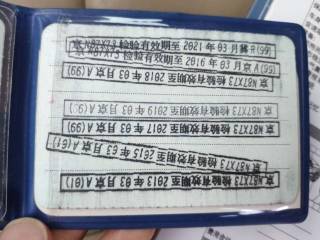 京N87X73 检验有效期至 2021 年 03 月冀R(99)
京N87X73 检验有效期至 2016 年 03 月京 A (99)
京 N87X73 检验有效期至 2018 年 03 月京 A (99)
京 N87X73 检验有效期至 2019 年 03 月京 A (99)
京 N87X73 检验有效期至 2017 年 03 月京 A (99)
京 N87X73 检验有效期至 2015 年 03 月京 A (61)
京 N87X73 检验有效期至 2013 年 03 月京 A (61)